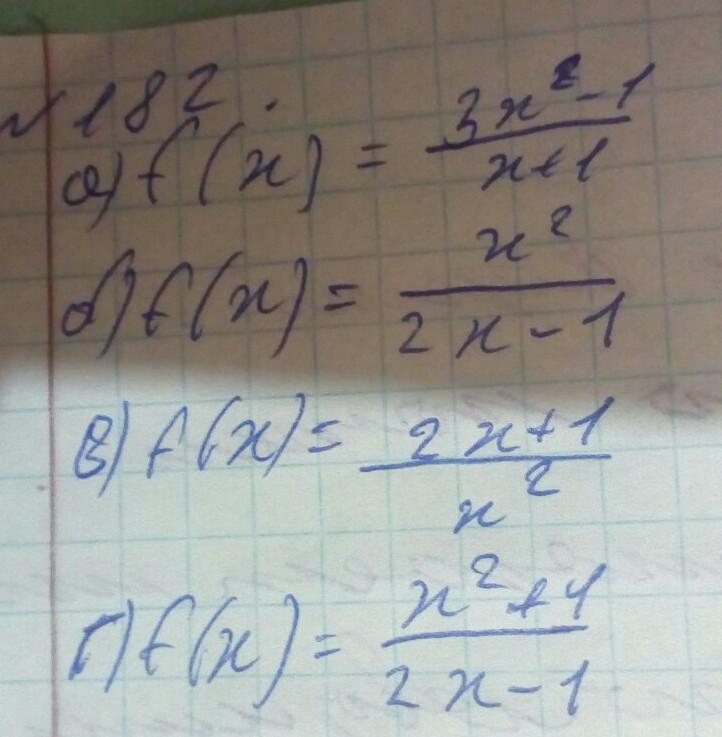 №182.
а) f(x) = (3x² - 1)/(x+1)
б) f(x) = x²/(2x - 1)
в) f(x) = (2x+1)/x²
г) f(x) = (x²+1)/(2x-1)